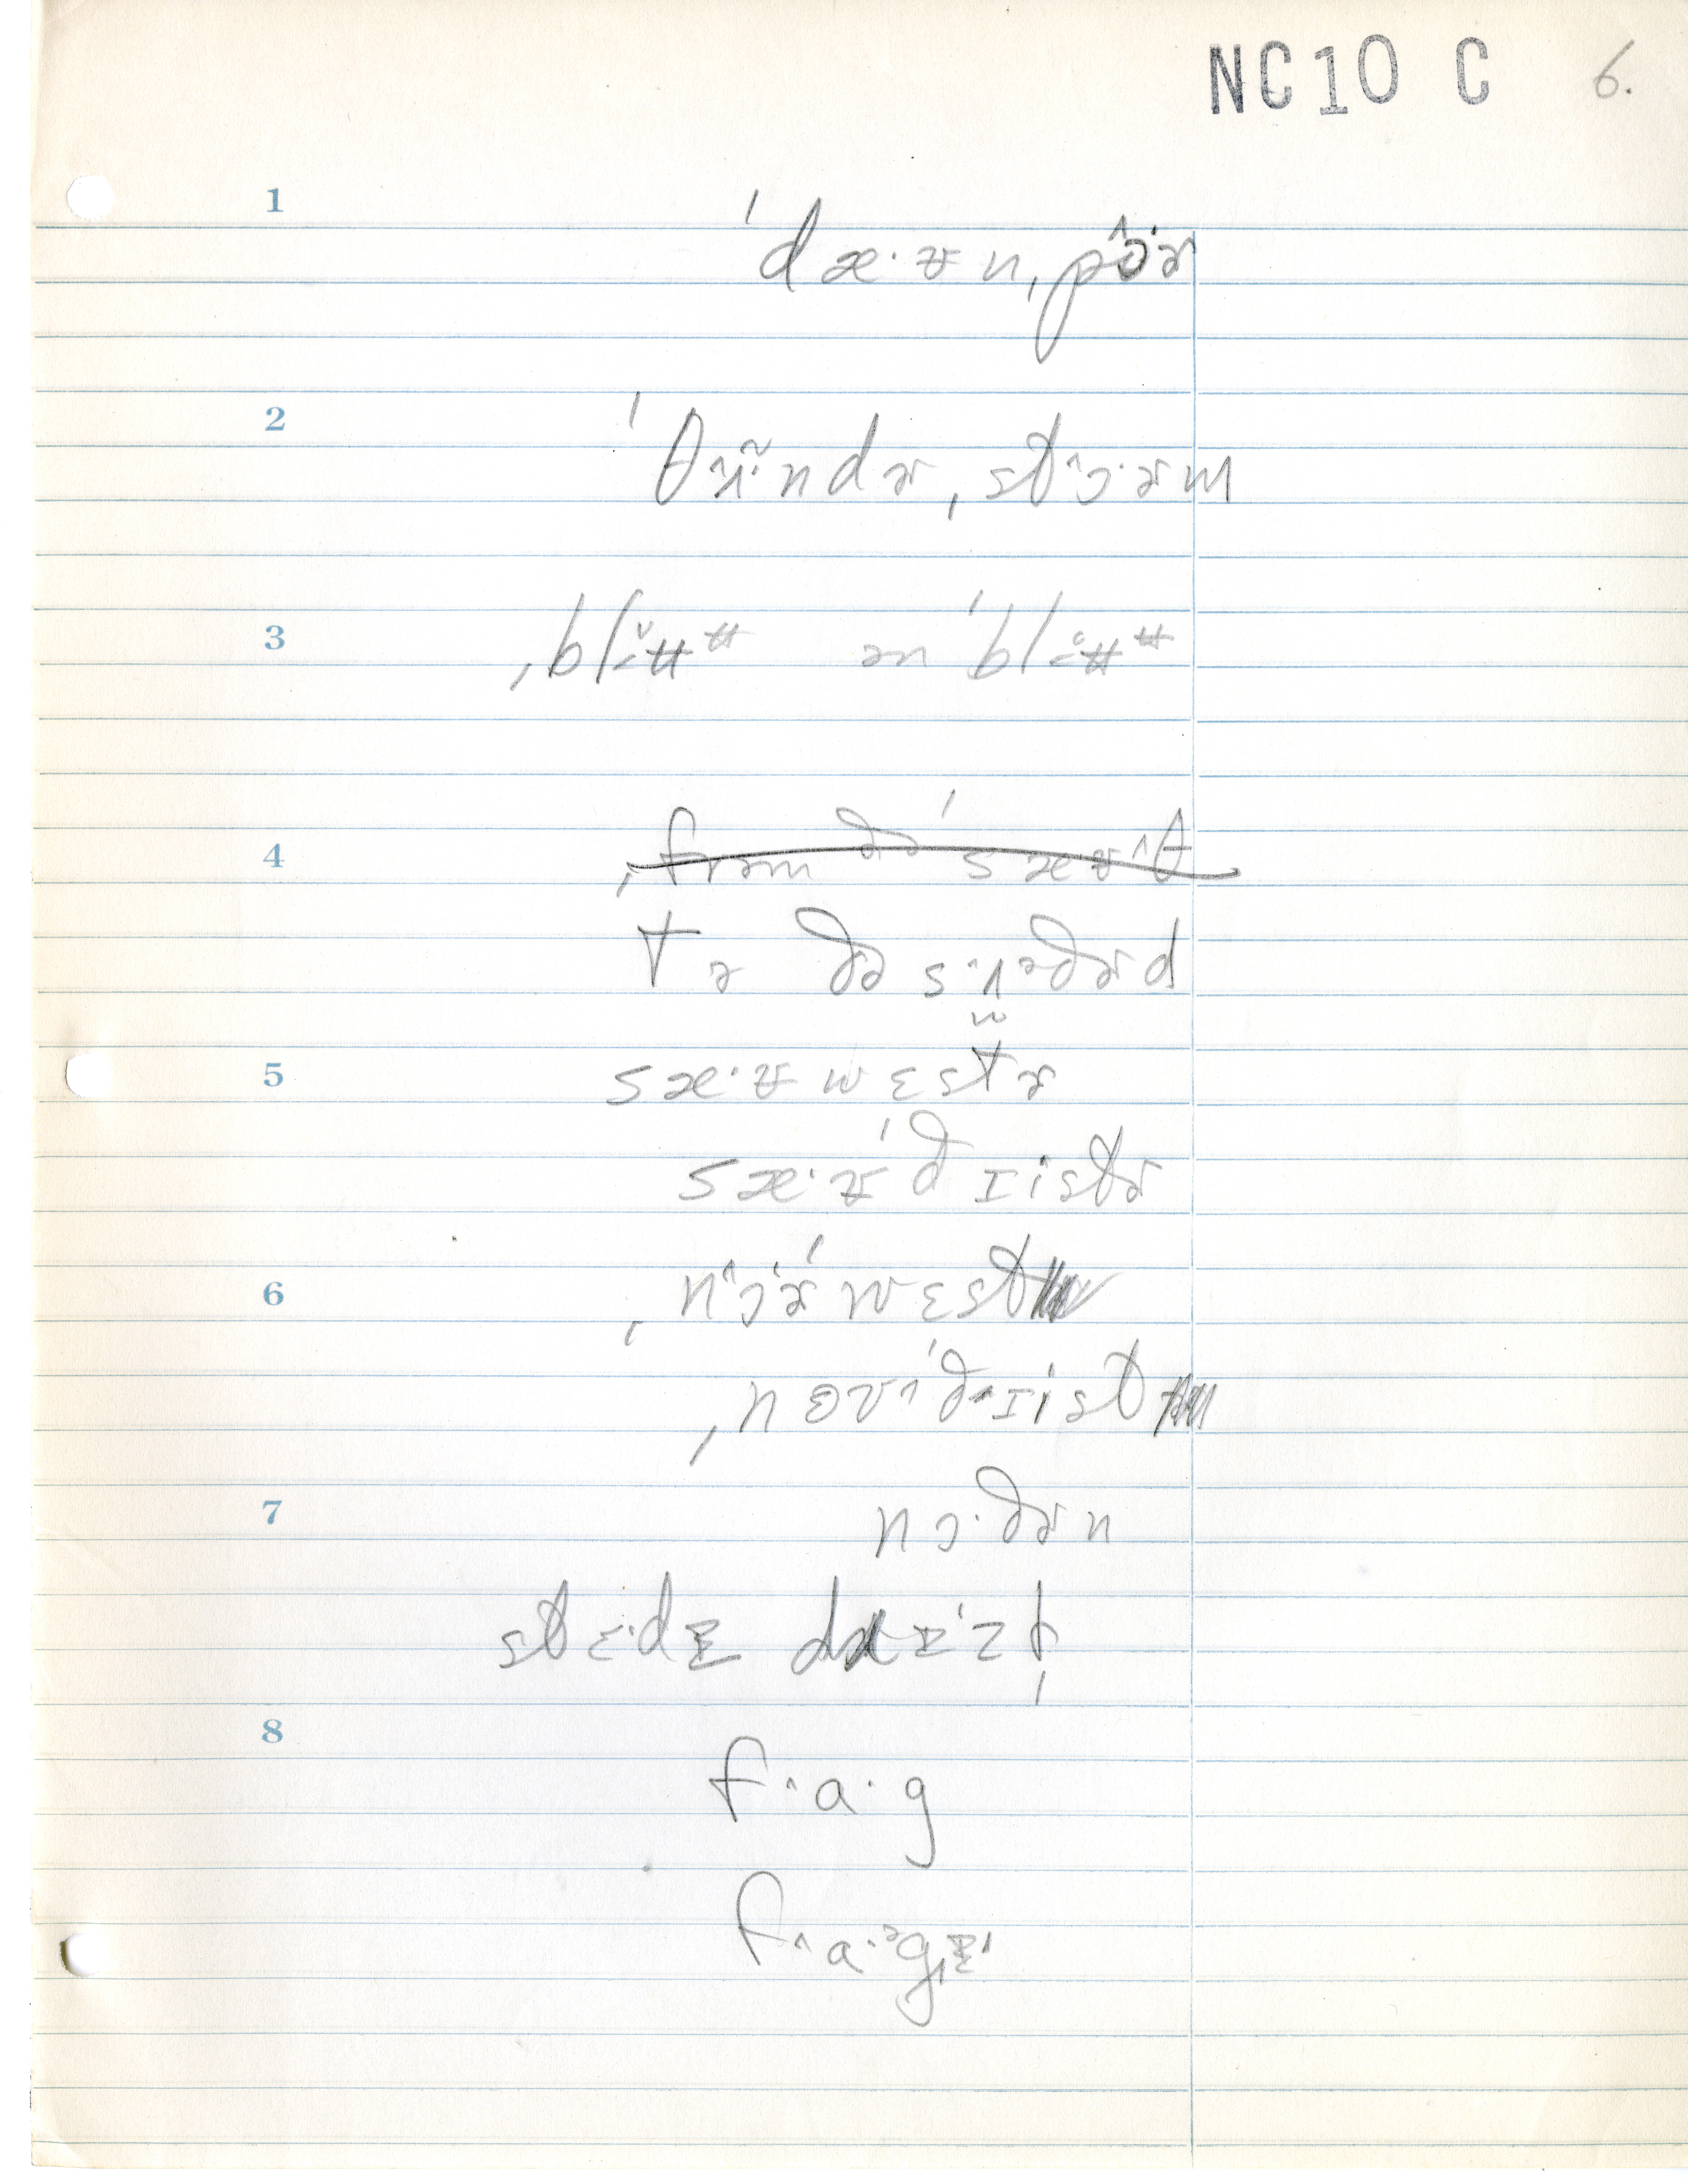 NC10 C 6.
1
ˈdæ·ʊn,pɔ̂·ɚ
2
ˈθʌ̃·ndɚ,stɔ·ɚm
3
,blʉʉ ən ˈblʉʉ
4
,frəm ðə ˈsæʊθ
tə ðə sʌəðɚd
5
sæ·ʊwɛstɚ
sæ·ʊˈðɪistɚ
6
,nɔɚˈwɛst
,nɔɚˈðɪist
7
nɔ·ðɚn
stɛ·dɪ drɪ·zḷ
8
f·a·g
f·a·əgɪ